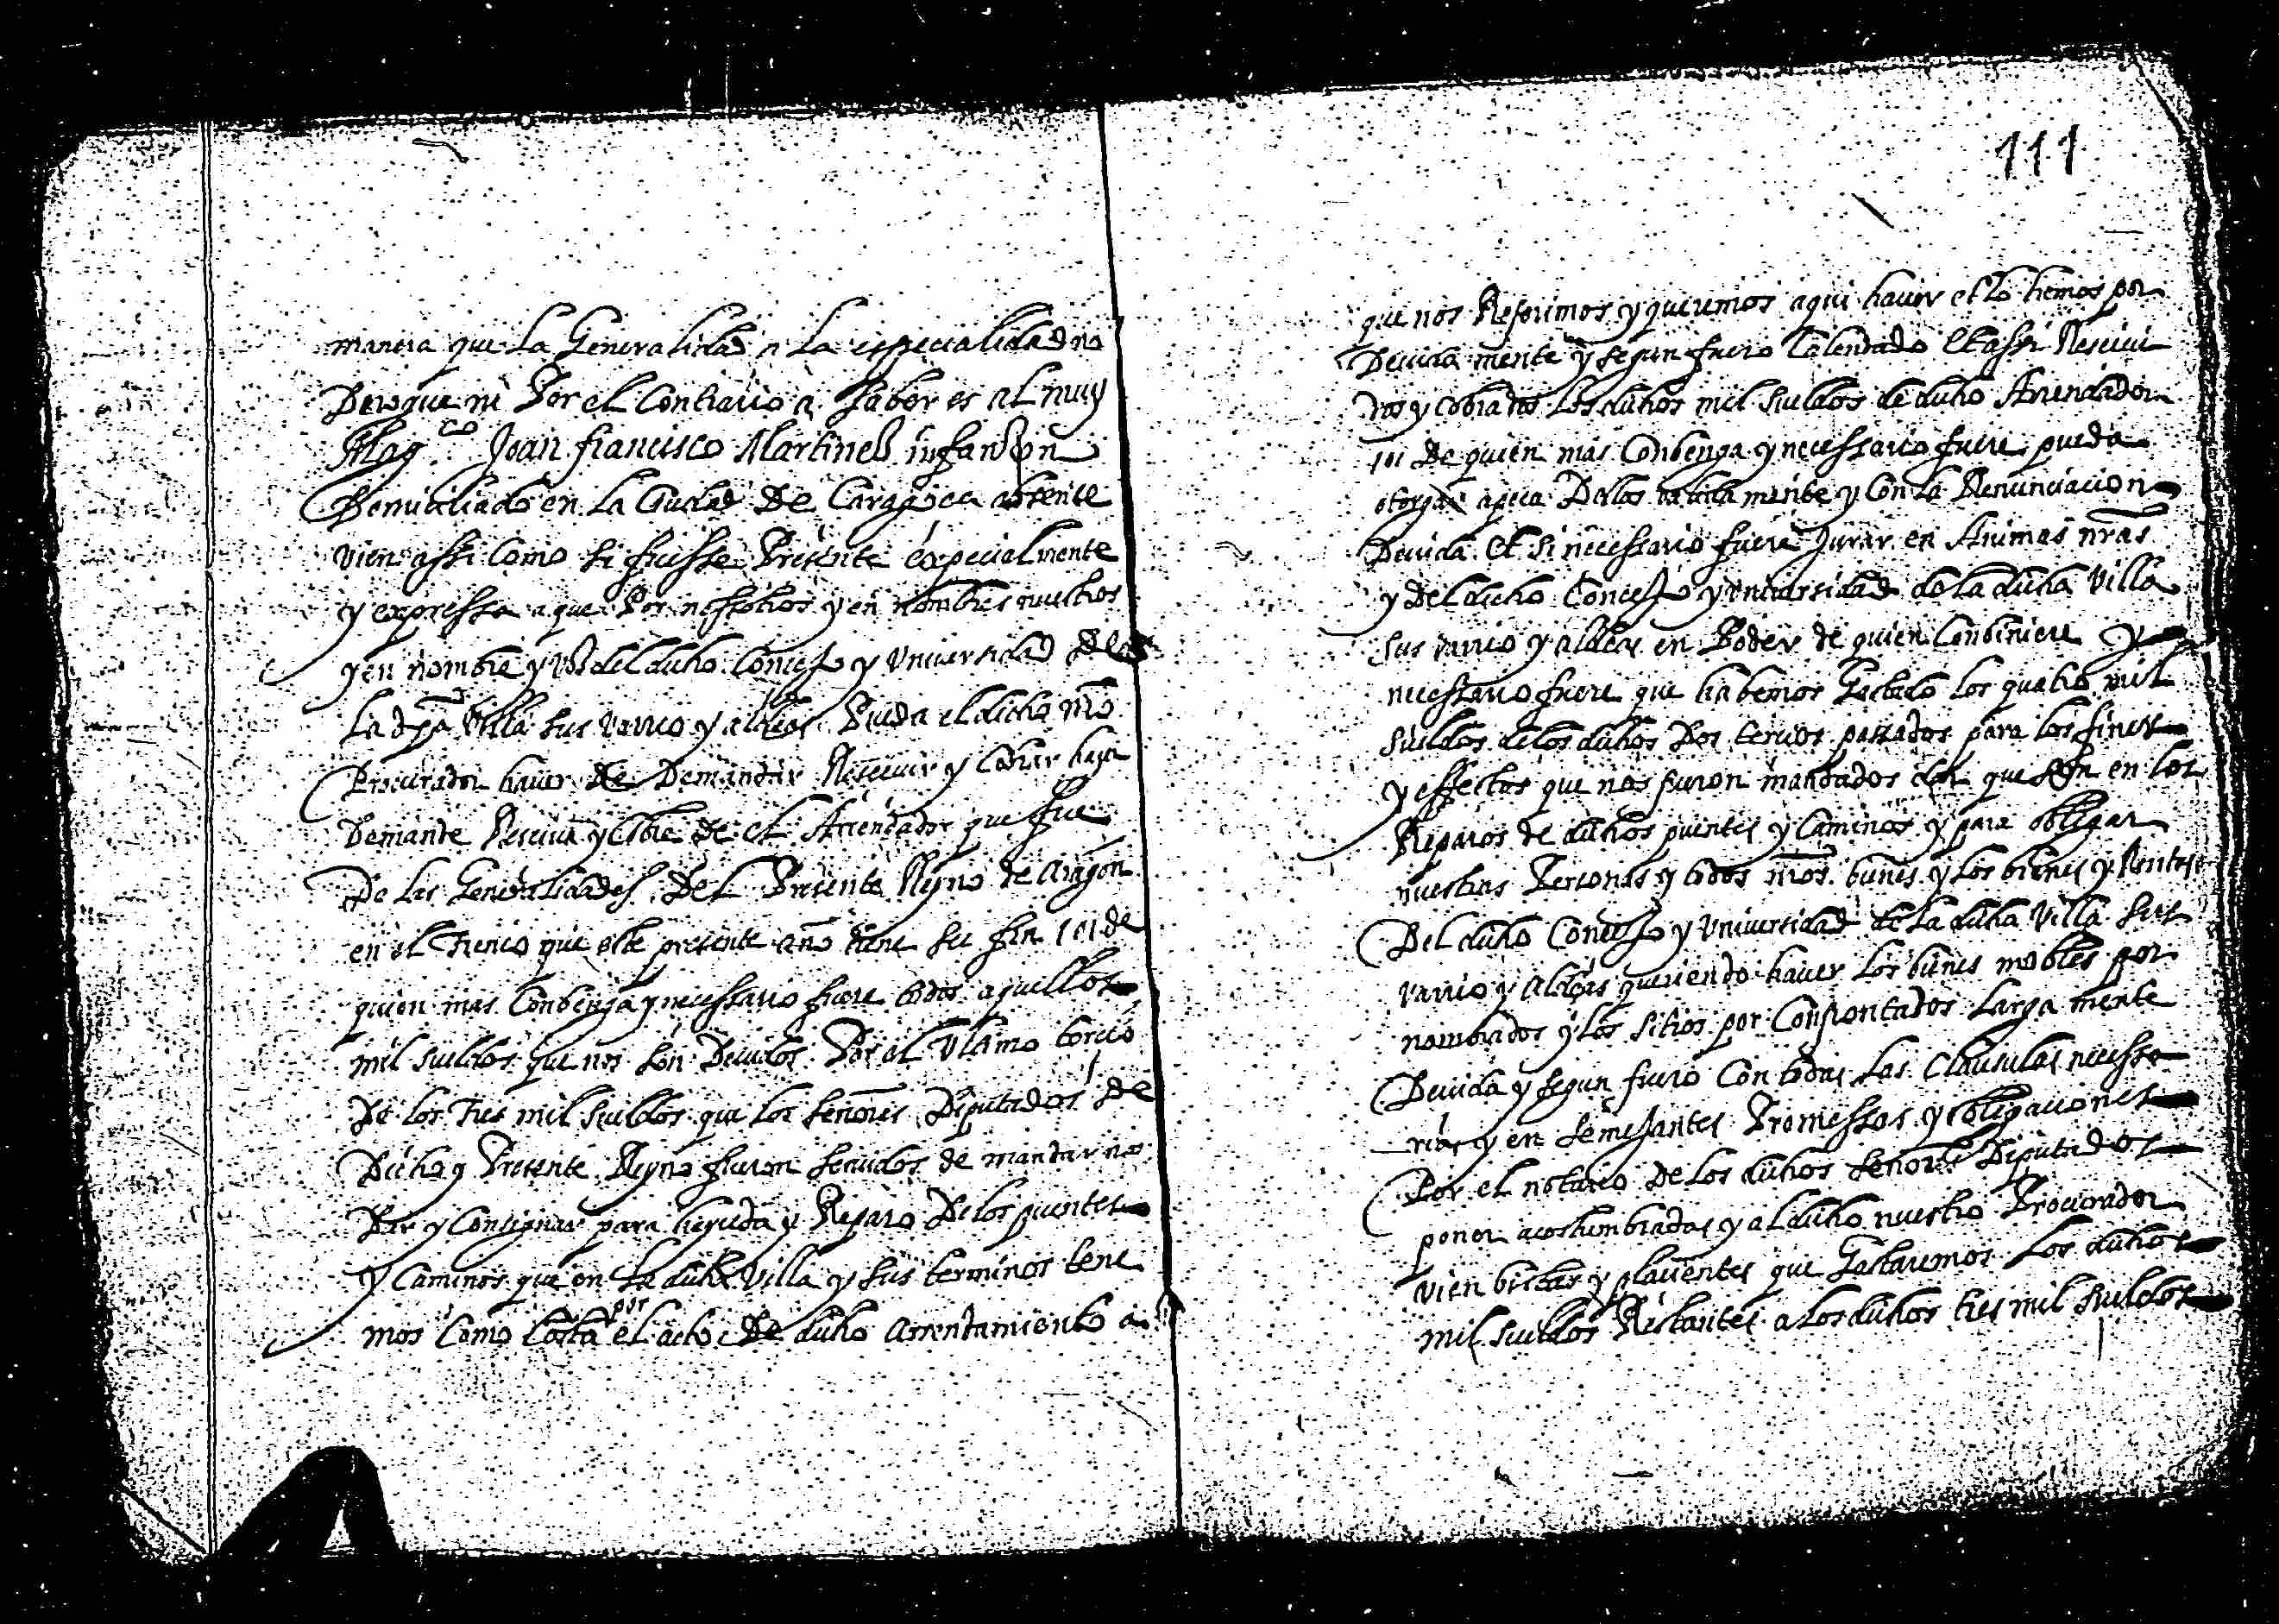 manera que La Generalidad a La especialidad no
Derogue ni Por el Contrario a Saber es al muy
Mag.co Joan francisco Martinez infanzon
Domiciliado en La Ciudad De Caragoça absente
vien assi Como si fuesse Presente especialmente
y expressa a que Por nosotros y en nombres nuestros
y en nombre y voz del dicho Concejo y Universidad De
La dha Villa sus varrio y aldeas Pueda el dicho nro
Procurador haver de Demandar Rescivir y Cobrar haya
Demande Resciva y Cobre de el Arrendador que fue
De las Generalidades Del Presente Reyno de Aragon
en el Trienio que este presente año tiene su fin o de
quien mas Conbenga y necessario fuere todos aquellos
mil sueldos que nos son Devidos Por el Ultimo tercio
De los Tres mil sueldos que los señores Diputados De
Dicho y Presente Reyno fueron servidos de mandarnos
Dar y Consignar para ayuda y Reparo De los puentes
y Caminos que en La dicha Villa y sus terminos tene
mos Como Consta por el acto De dicho Arrendamiento a
111
que nos Referimos y queremos aqui haver et lo hemos por
Devida mente y segun fuero Calendado Et assi Rescivi
dos y Cobrados Los dichos mil sueldos de dicho Arrendador
o De quien mas Conbenga y necessario fuere pueda
otorgar apoca Dellos valida mente y Con La Renunciacion
Devida Et si necessario fuere Jurar en Animas nras
y Del dicho Concejo y Universidad de La dicha Villa
sus varrio y aldeas en Poder de quien Conbiniere y
necessario fuere que habemos Gastado los quatro mil
sueldos de los dichos Dos tercios passados para los fines
y effectos que nos fueron mandados dar que son en los
Reparos de dichos puentes y Caminos y para obligar
nuestras Personas y todos nros bienes y Los bienes y Rentas
Del dicho Concejo y Universidad de La dicha Villa sus
varrio y Aldeas queriendo haver Los bienes mobles por
nombrados y Los sitios por Confrontados Larga mente
Devida y segun fuero Con todas Las Clausulas necessa
rias y en semejantes Promessas y obligaciones
Por el notario De Los dichos señores Diputados
poner acostumbradas y al dicho nuestro Procurador
vien bistas y placientes que Gastaremos Los dichos
mil sueldos Restantes a Los dichos tres mil sueldos